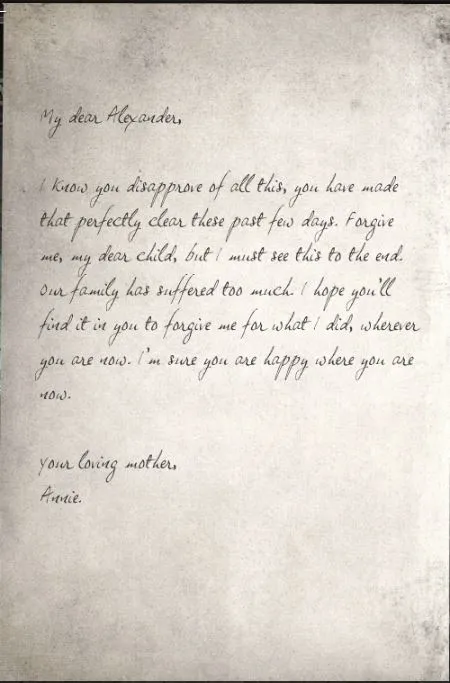 My dear Alexander,
I know you disapprove of all this, you have made
that perfectly clear these past few days. Forgive
me, my dear child, but I must see this to the end.
Our family has suffered too much. I hope you'll
find it in you to forgive me for what I did, wherever
you are now. I'm sure you are happy where you are
now.
Your loving mother,
Annie.